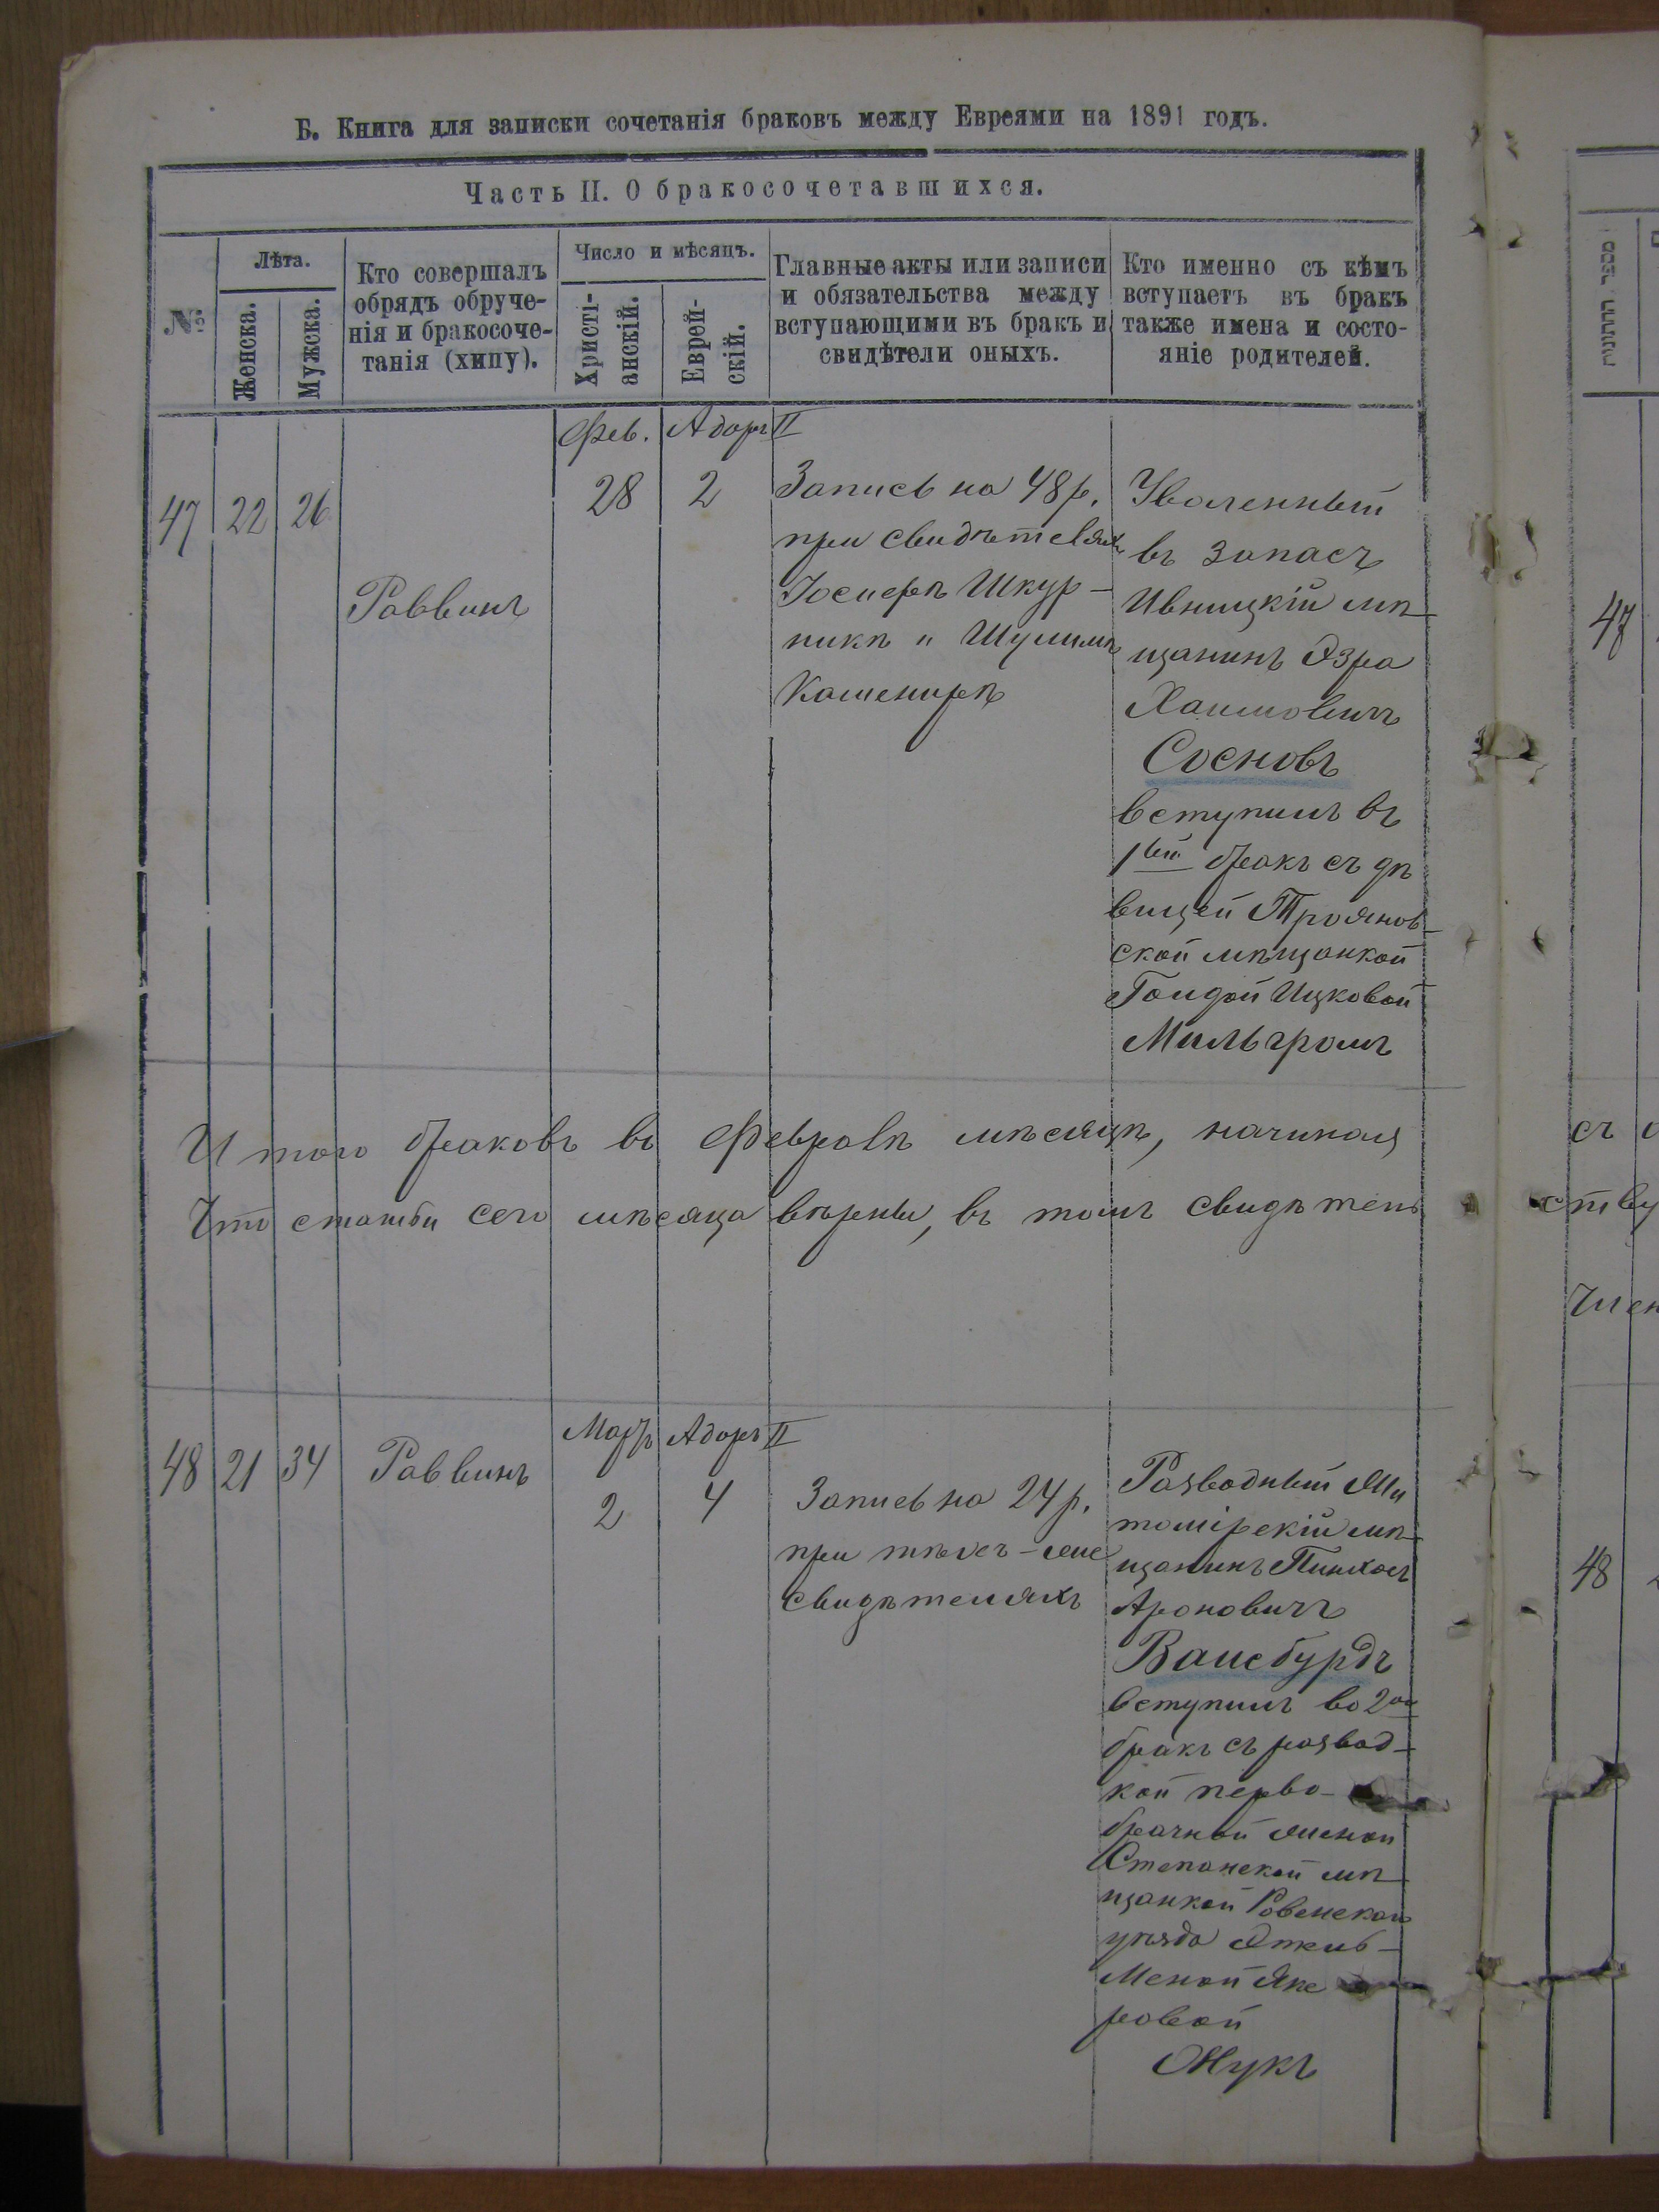 Б. Книга для записки сочетанія браковъ между Евреями на 1891 годъ.
Часть II. О бракосочетавшихся.
№
Лѣта.
Женска.
Мужска.
Кто совершалъ
обрядъ обруче-
нія и бракосоче-
танія (хипу).
Число и мѣсяцъ.
Христі-
анскій.
Еврей-
скій.
Главные акты или записи
и обязательства между
вступающими въ бракъ и
свидѣтели оныхъ.
Кто именно съ кѣмъ
вступаетъ въ бракъ
также имена и состо-
яніе родителей.
Фев. Адоръ II
47 22 26
Раввинъ
28 2
Запись на 48 р.
при свидѣтеляхъ
Іосифѣ Шкур-
никѣ и Шулимѣ
Кашенирѣ
Уволенный
въ запасъ
Ивницкій мѣ-
щанинъ Эзра
Хаимовичъ
Сосновъ
вступилъ въ
1вый бракъ съ дѣ
вицей Троянов-
ской мѣщанкой
Голдой Ицковой
Мильгромъ
Итого браковъ въ Февралѣ мѣсяцѣ, начиная
Что статьи сего мѣсяца вѣрны, въ томъ свидѣтель
48 21 34 Раввинъ
Мартъ Адоръ II
2 4
Запись на 24 р.
при тѣхъ-же
свидѣтеляхъ
Разводный Жи
томірскій мѣ-
щанинъ Пинхасъ
Ароновичъ
Ваисбурдъ
вступилъ во 2ой
бракъ съ развод-
кой перво-
брачной женой
Степанской мѣ-
щанкой Ровенскаго
уѣзда Этель-
Меной Яке
ровой
Жукъ
47
съ
ству
Член
48